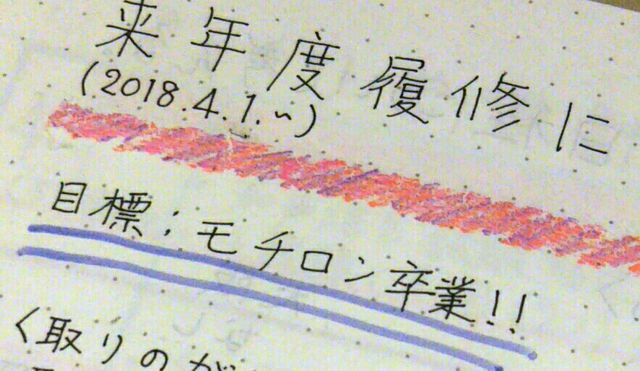 来年度履修に
(2018.4.1.~)
目標:モチロン卒業!!
<取りのが